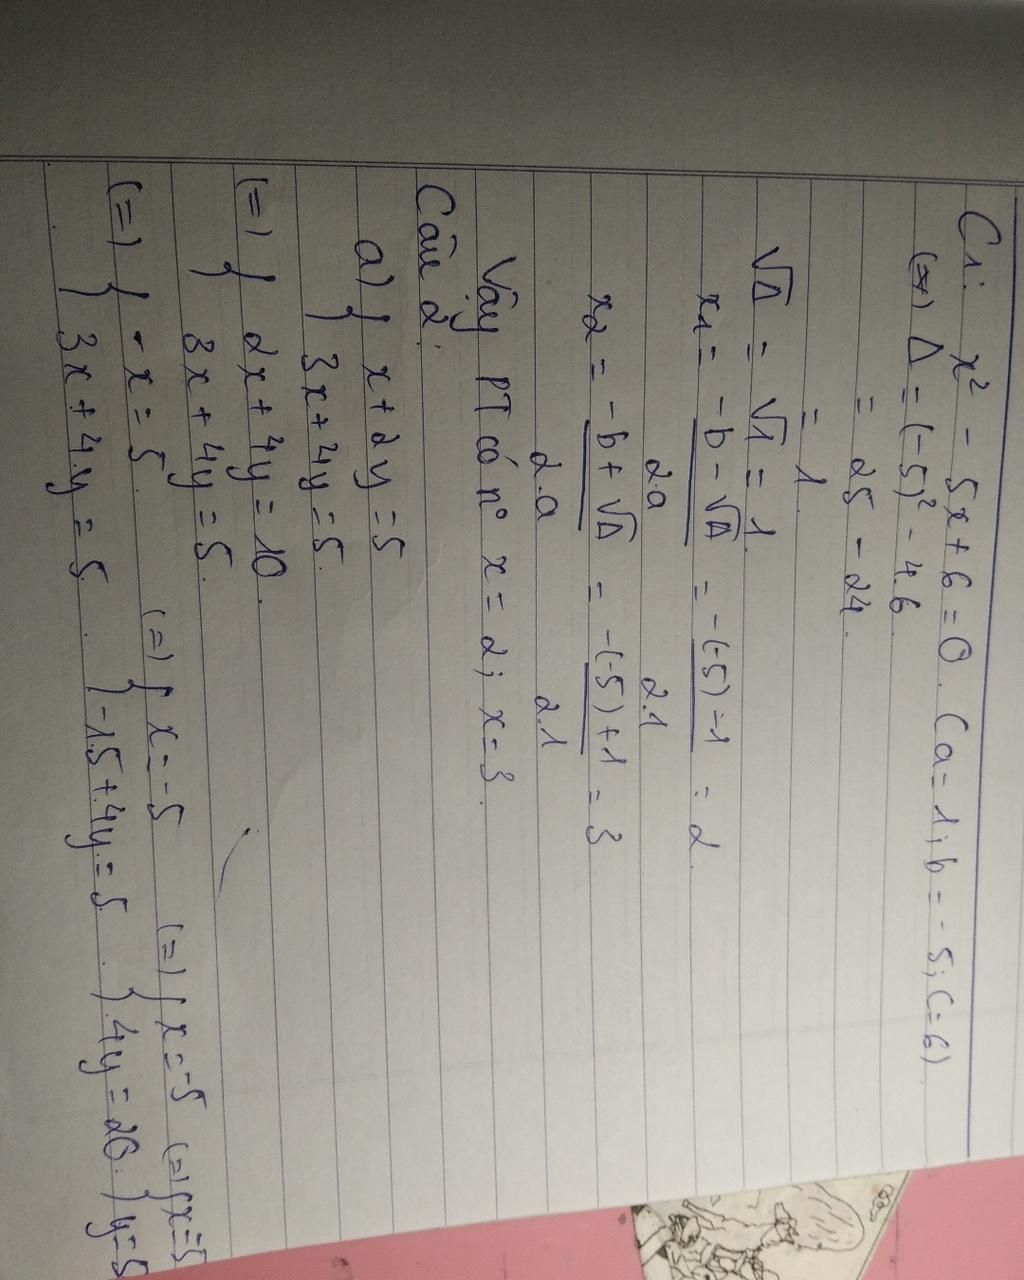 C1: x² - 5x + 6 = 0. (a = 1; b = -5; c = 6)
(=) Δ = (-5)² - 4.6
= 25 - 24.
= 1
√Δ = √1 = 1.
x1 = -b - √Δ / 2a = -(-5) - 1 / 2.1 = 2.
x2 = -b + √Δ / 2.a = -(-5) + 1 / 2.1 = 3
Vậy PT có n° x = 2; x = 3.
Câu 2:
a) { x + 2y = 5
{ 3x + 4y = 5.
(=) { 2x + 4y = 10.
{ 3x + 4y = 5.
(=) { -x = 5. (=) { x = -5 (=) { x = -5 (=) { x = 5
{ 3x + 4.y = 5. { -15 + 4y = 5. { 4y = 20. { y = 5